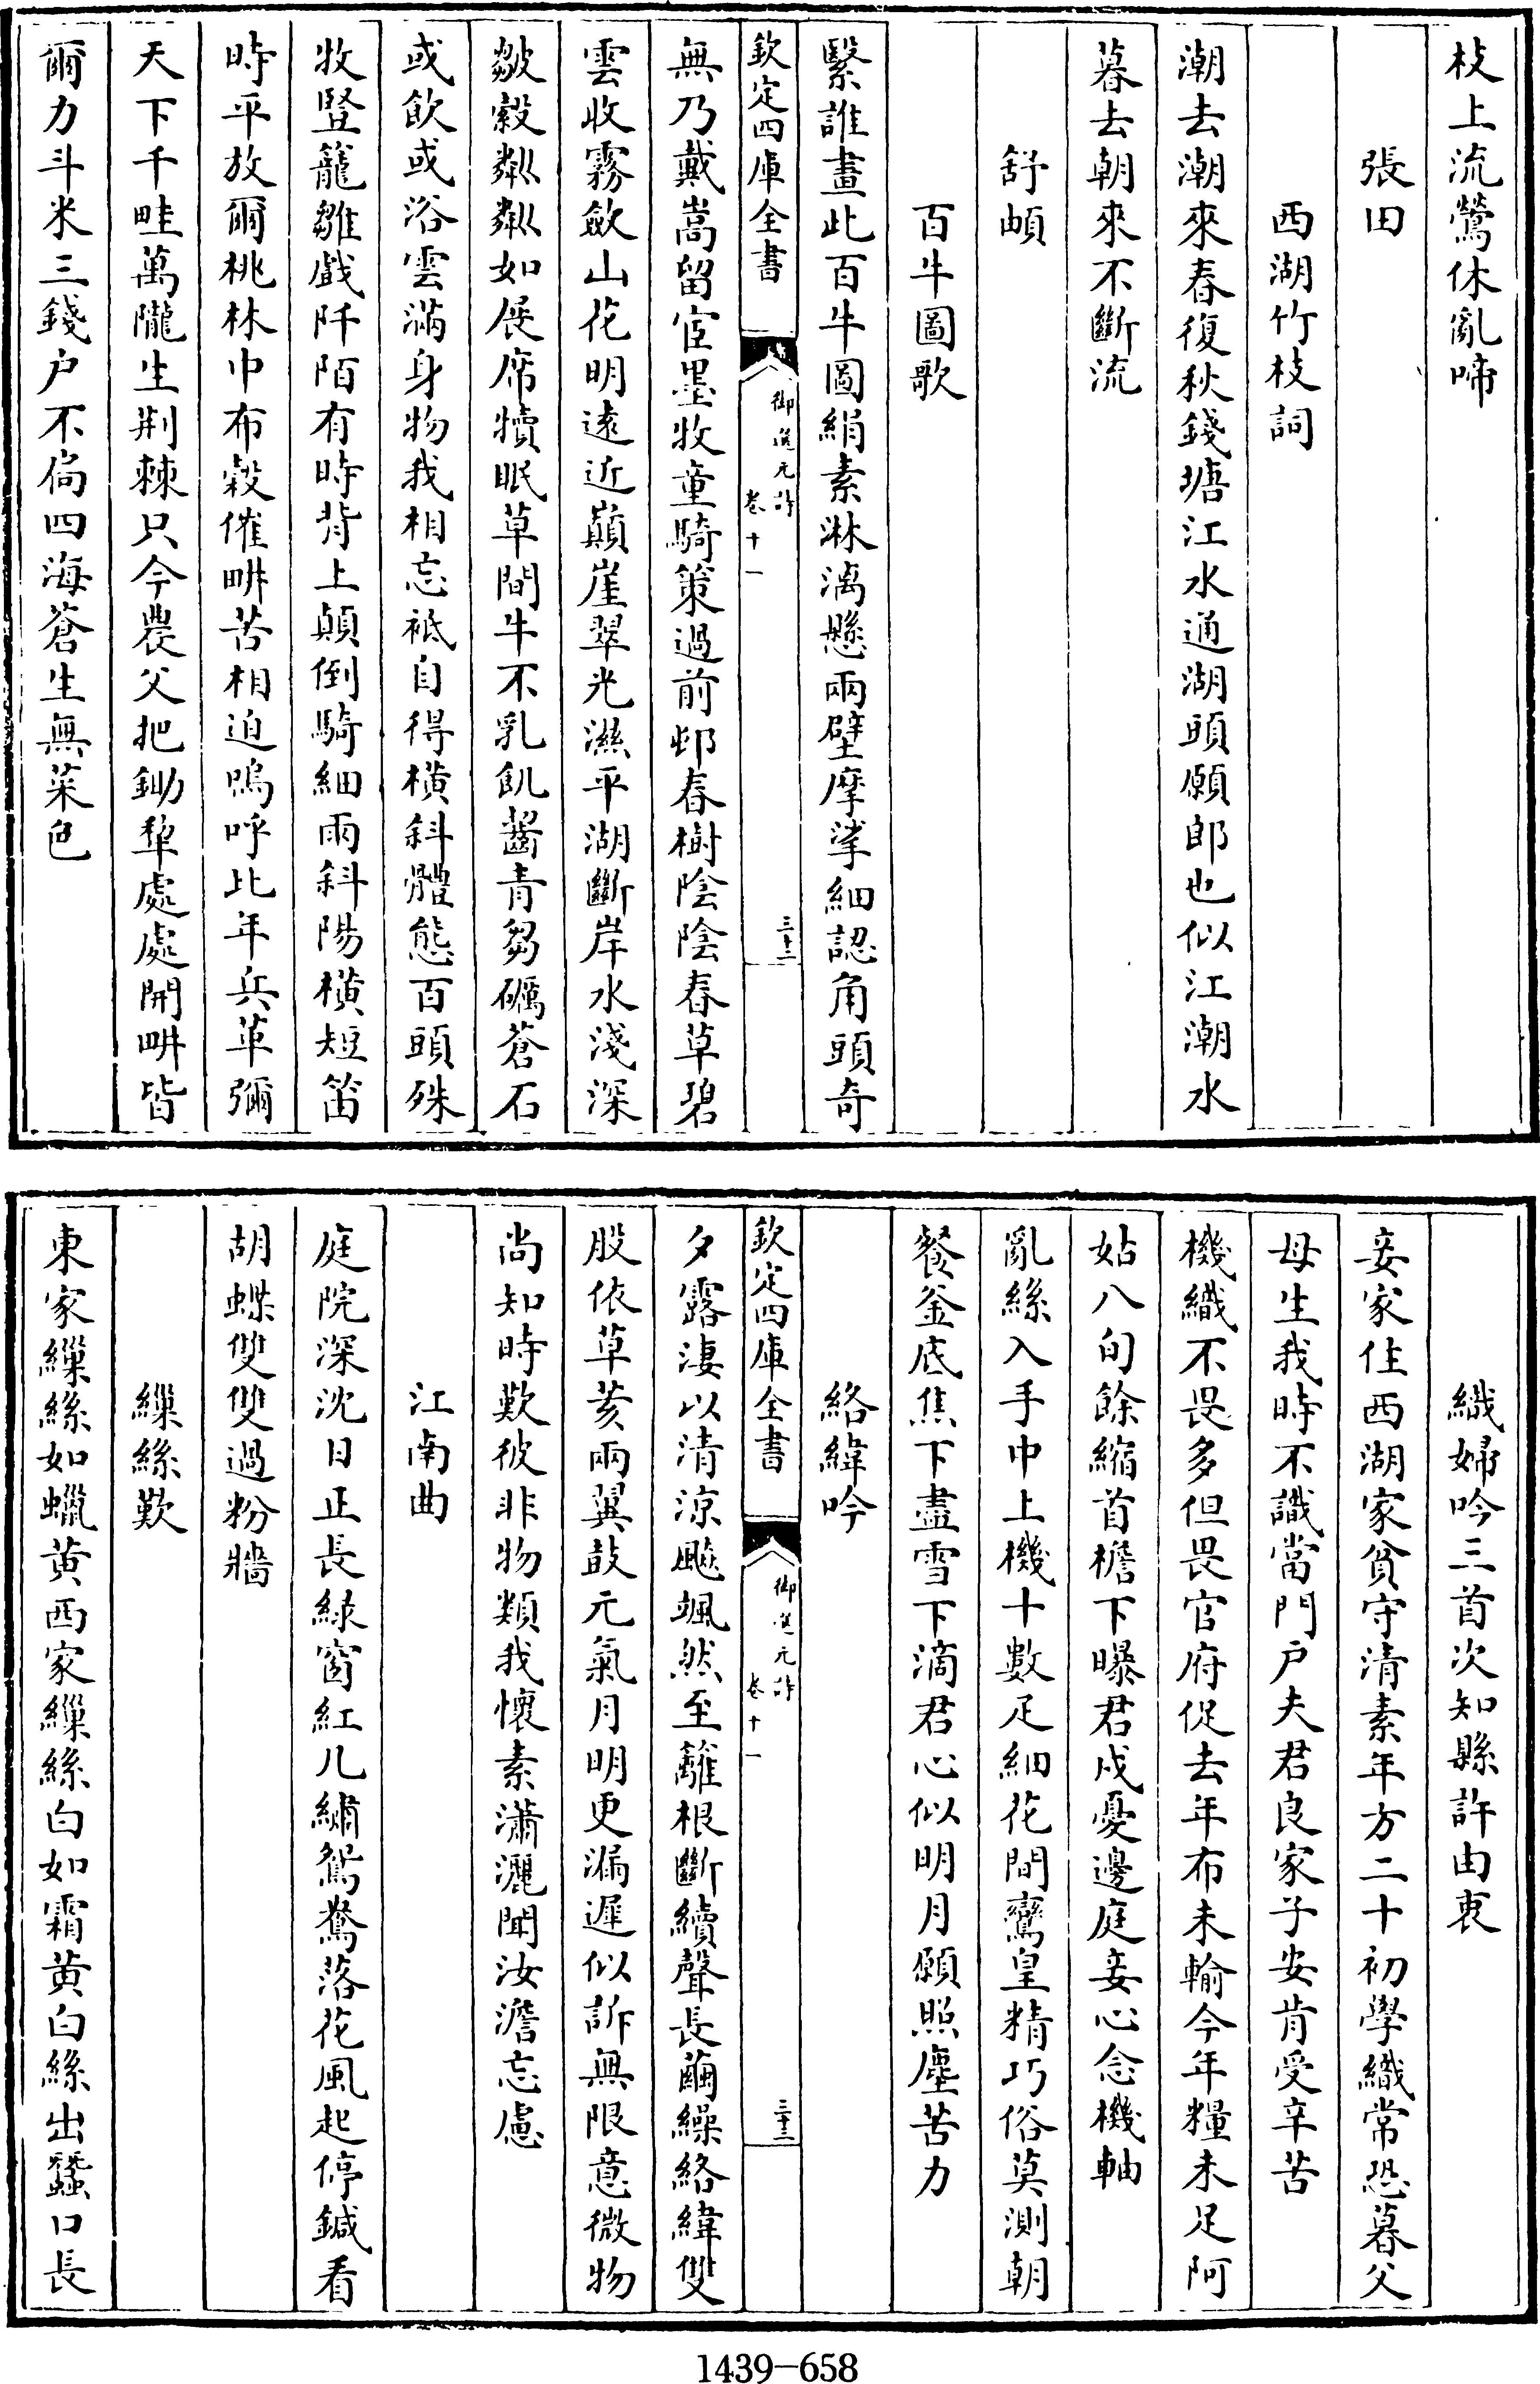 枝上流鶯休亂啼
張田
西湖竹枝詞
潮去潮來春復秋錢塘江水通湖頭願郎也似江潮水
暮去朝來不斷流
舒頔
百牛圖歌
繄誰畫此百牛圖絹素淋漓懸兩壁摩挲細認角頭奇
欽定四庫全書
御選元詩
卷十一
三十二
無乃戴嵩留宦墨牧童騎策過前邨春樹陰陰春草碧
雲收霧斂山花明遠近巔崖翠光濕平湖斷岸水淺深
皺縠粼粼如展席犢眠草間牛不乳飢齧青芻礪蒼石
或飲或浴雲滿身物我相忘祗自得橫斜體態百頭殊
牧豎籠雛戲阡陌有時背上顛倒騎細雨斜陽橫短笛
時平放爾桃林中布穀催畊苦相迫嗚呼比年兵革彌
天下千畦萬隴生荆棘只今農父把鋤犂處處開畊皆
爾力斗米三錢户不扃四海蒼生無菜色
織婦吟三首次知縣許由衷
妾家住西湖家貧守清素年方二十初學織常恐暮父
母生我時不識當門户夫君良家子安肯受辛苦
機織不畏多但畏官府促去年布未輸今年糧未足阿
姑八旬餘縮首檐下曝君戍憂邊庭妾心念機軸
亂絲入手中上機十數疋細花間鸞皇精巧俗莫測朝
餐釜底焦下盡雪下滴君心似明月願照塵苦力
絡緯吟
欽定四庫全書
御選元詩
卷十一
三十三
夕露淒以清涼颸颯然至籬根斷續聲長繭繰絡緯雙
股依草荄兩翼鼓元氣月明更漏遲似訴無限意微物
尚知時歎彼非物類我懷素瀟灑聞汝澹忘慮
江南曲
庭院深沈日正長緑窗紅几繡鴛鴦落花風起停鍼看
胡蝶雙雙過粉牆
繅絲歎
東家繅絲如蠟黄西家繅絲白如霜黄白絲出蠶口長
1439-658